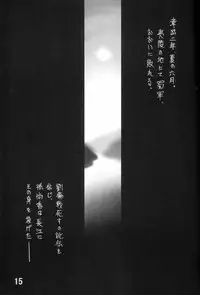 章武二年、夏の六月。
夷陵の地にて蜀軍、
おおいに敗れる。
劉備戦死すの訛伝を
信じ、
孫尚香は長江に
その身を投げた──
15